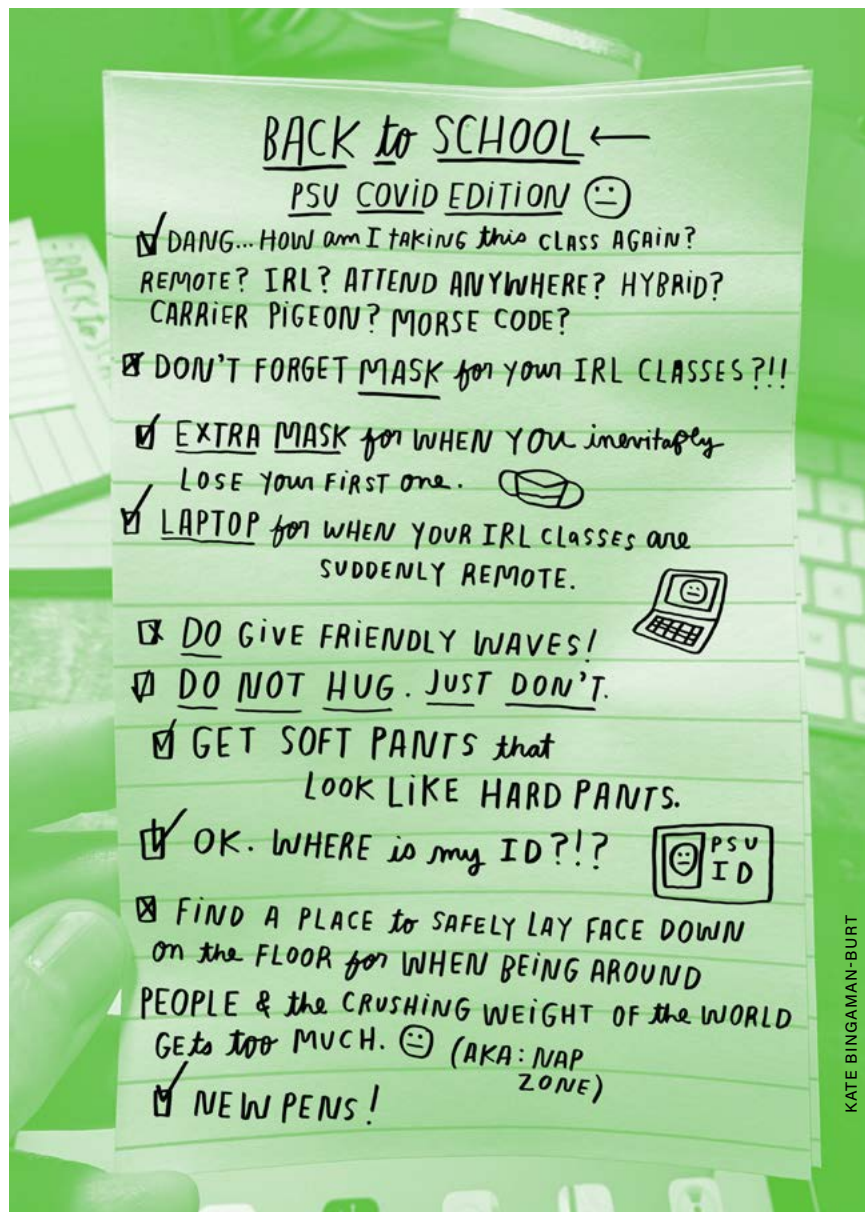 BACK to SCHOOL ←
PSU COVID EDITION
DANG... HOW am I TAKING this CLASS AGAIN?
REMOTE? IRL? ATTEND ANYWHERE? HYBRID?
CARRIER PIGEON? MORSE CODE?
DON'T FORGET MASK for your IRL CLASSES?!!
EXTRA MASK for WHEN YOU inevitably
LOSE YOUR FIRST one.
LAPTOP for WHEN YOUR IRL CLASSES are
SUDDENLY REMOTE.
DO GIVE FRIENDLY WAVES!
DO NOT HUG. JUST DON'T.
GET SOFT PANTS that
LOOK LIKE HARD PANTS.
OK. WHERE is my ID?!?
PSU
ID
FIND A PLACE to SAFELY LAY FACE DOWN
on the FLOOR for WHEN BEING AROUND
PEOPLE & the CRUSHING WEIGHT OF the WORLD
GEts too MUCH.
(AKA: NAP
ZONE)
NEW PENS!
KATE BINGAMAN-BURT